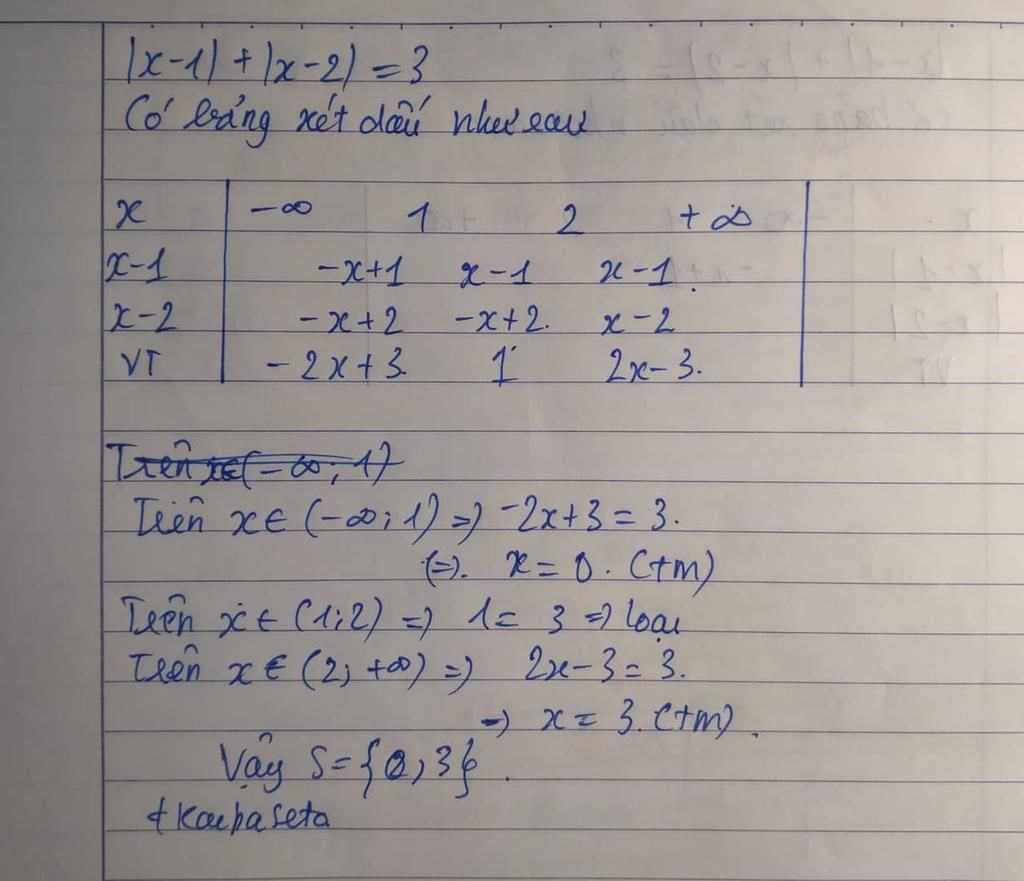 |x-1| + |x-2| = 3
Có bảng xét dấu như sau
x -∞ 1 2 +∞
x-1 -x+1 x-1 x-1.
x-2 -x+2 -x+2. x-2
VT -2x+3. 1 2x-3.
Trên x∈(-∞; 1)
Trên x∈ (-∞; 1) => -2x+3 = 3.
(=). x = 0. (tm)
Trên x∈ (1; 2) => 1 = 3 => loại
Trên x∈ (2; +∞) => 2x-3 = 3.
-> x = 3. (tm).
Vậy S = {0, 3}.